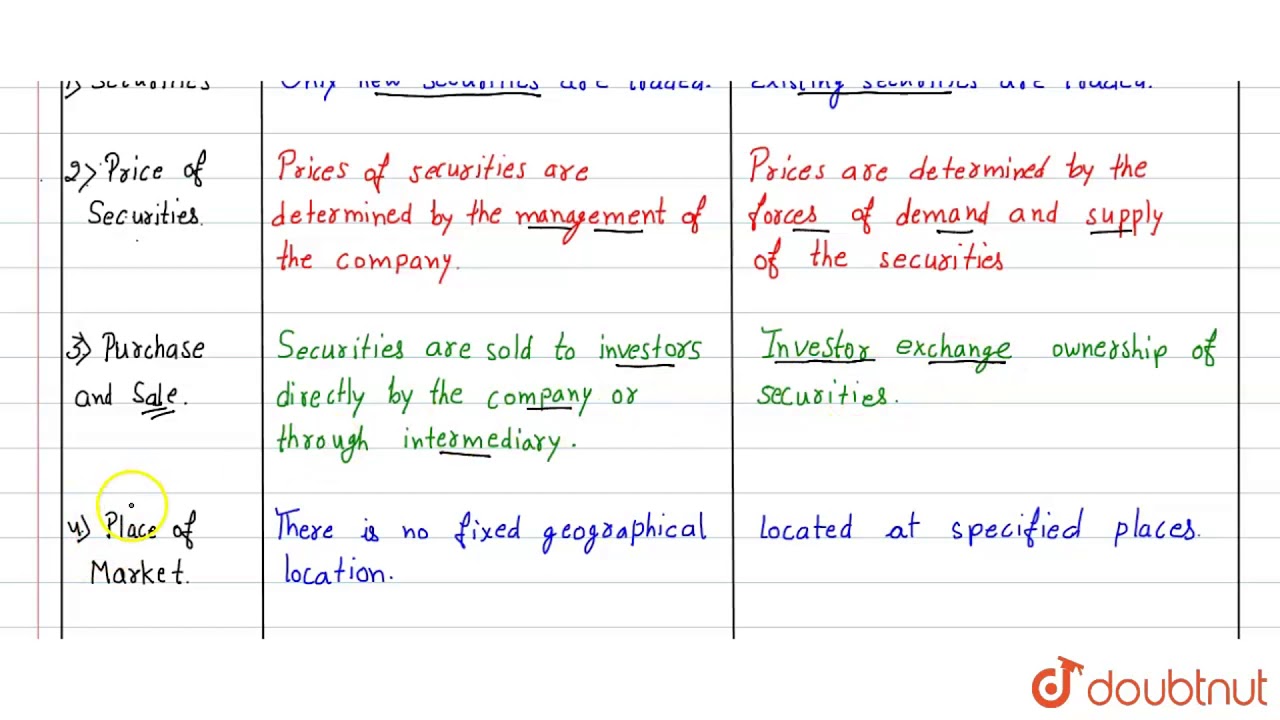 1) Securities
Only new securities are traded.
Existing securities are traded.
2) Price of
Securities.
Prices of securities are
determined by the management of
the company.
Prices are determined by the
forces of demand and supply
of the securities
3) Purchase
and Sale.
Securities are sold to investors
directly by the company or
through intermediary.
Investor exchange ownership of
securities.
4) Place of
Market.
There is no fixed geographical
location.
located at specified places.
doubtnut